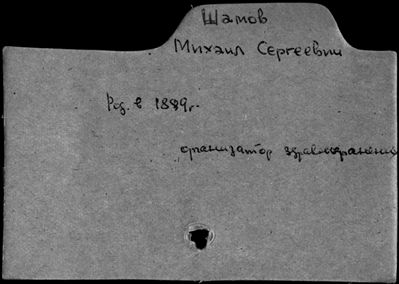 Шамов
Михаил Сергеевич
Род. в 1889г.
организатор здравоохранения